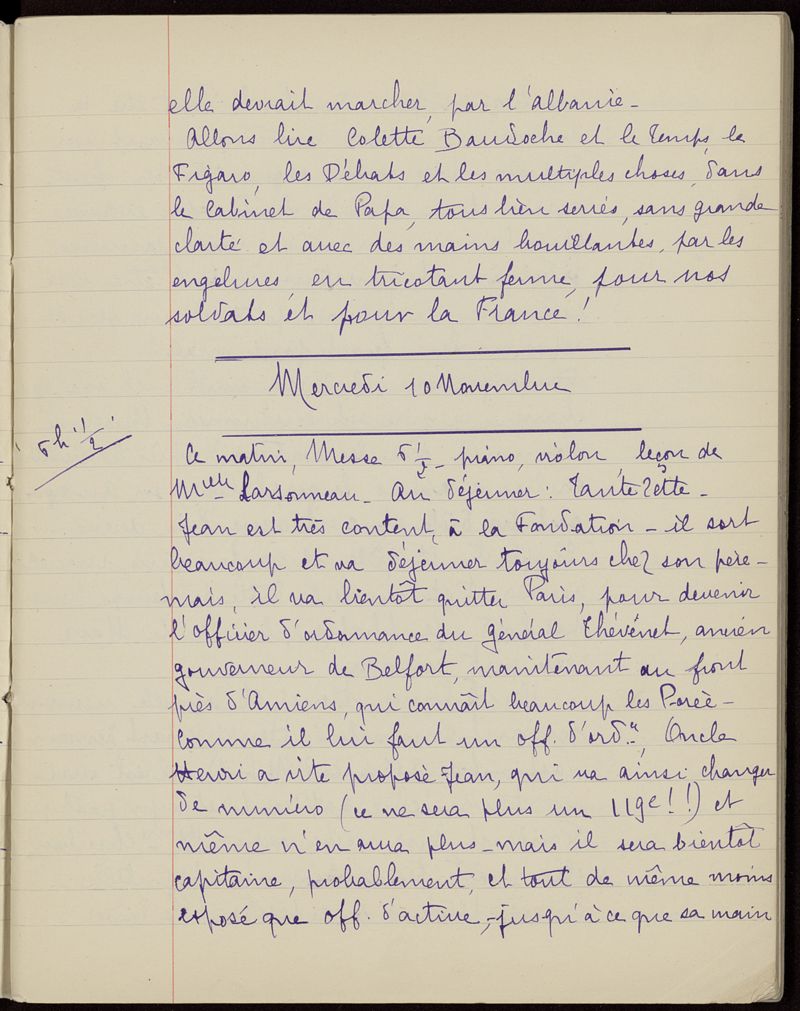 elle devrait marcher, par l'albanie -
Allons lire Colette Baudoche et le Temps, le
Figaro, les Débats et les multiples choses, dans
le Cabinet de Papa, tous bien serrés, sans grande
clarté et avec des mains bouillantes, par les
engelures, en tricotant ferme, pour nos
soldats et pour la France !
Mercredi 10 Novembre
6h 1/2
Ce matin, Messe 6 1/2 - piano, violon, leçon de
Melle Larsonneau - Au déjeuner : Tante Zette -
Jean est très content, à la Fondation - il sort
beaucoup et va déjeuner toujours chez son père -
mais, il va bientôt quitter Paris, pour devenir
l'officier d'ordonnance du général Thévenet, ancien
gouverneur de Belfort, maintenant au front
près d'Amiens, qui connaît beaucoup les Porée -
Comme il lui faut un off. d'ord.ce, Oncle
Henri a vite proposé Jean, qui va ainsi changer
de numéro (ce ne sera plus un 119e !!) et
même n'en aura plus - mais il sera bientôt
capitaine, probablement, et tout de même moins
exposé que off. d'active, - jusqu'à ce que sa main